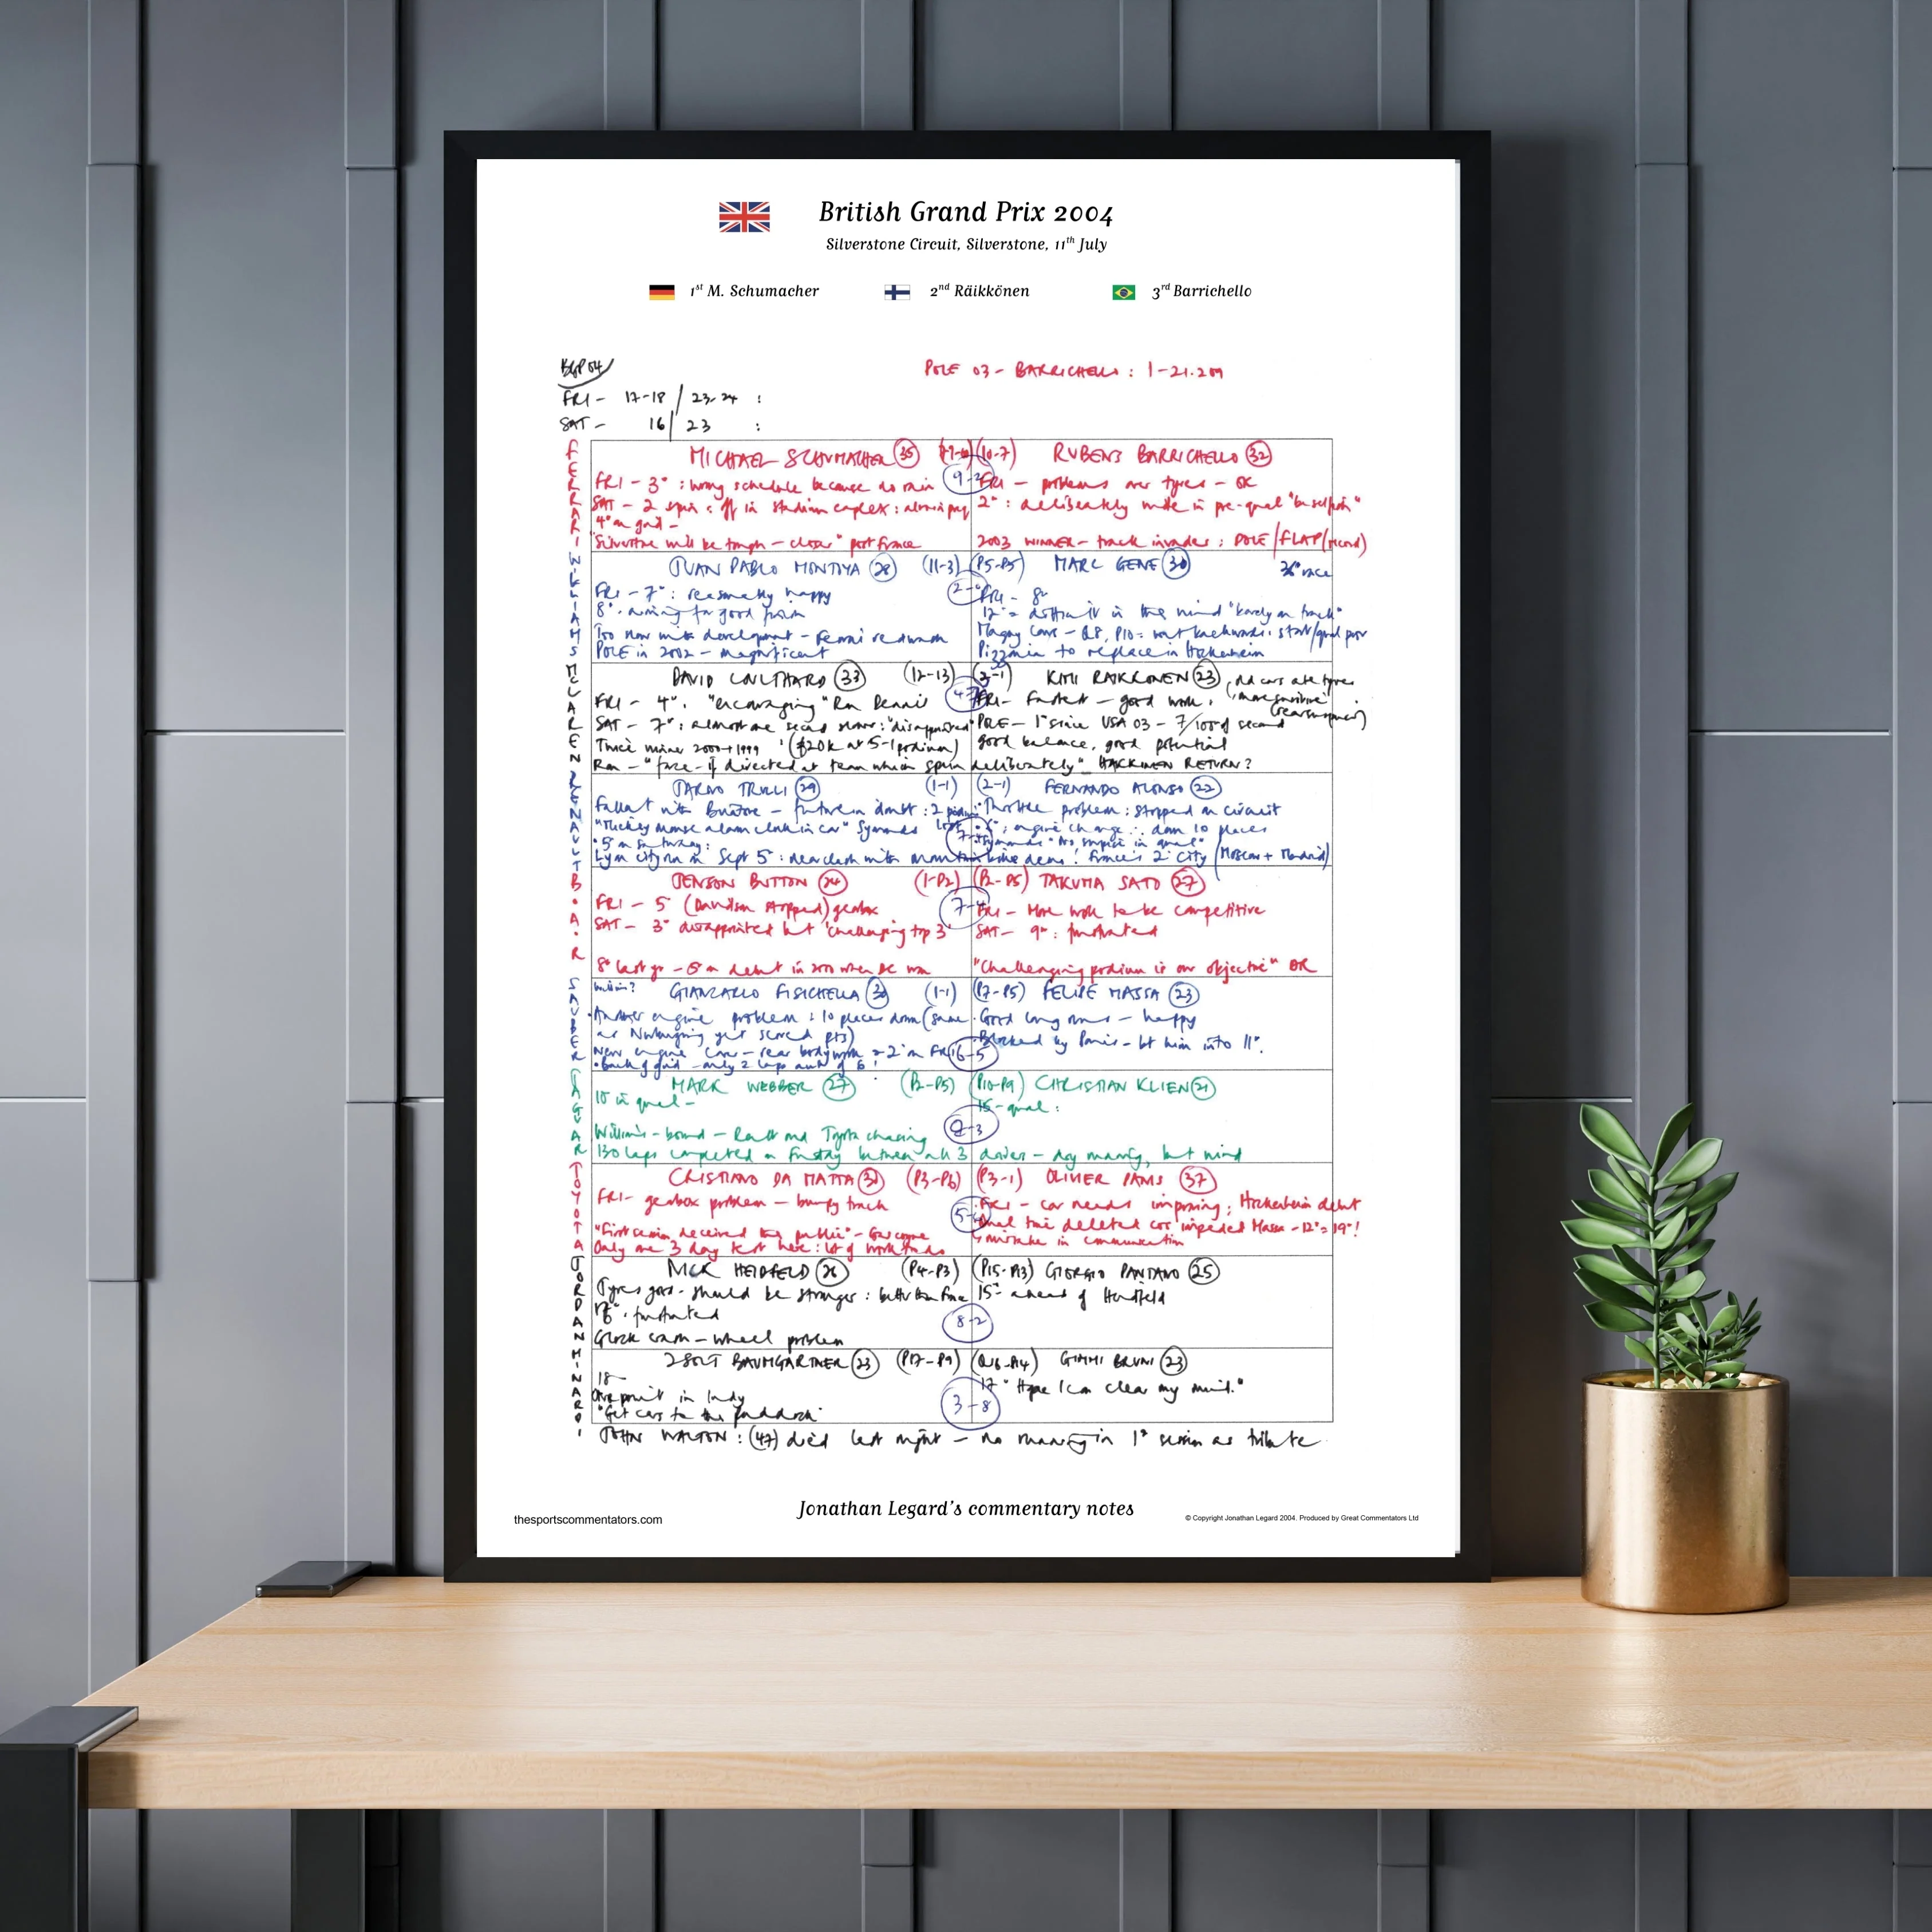 British Grand Prix 2004
Silverstone Circuit, Silverstone, 11th July
1st M. Schumacher 2nd Räikkönen 3rd Barrichello
BGP 04
POLE 03 - BARRICHELLO : 1-21.209
FRI - 17-18 / 23-24 :
SAT - 16 / 23 :
FERRARI
MICHAEL SCHUMACHER 35 (10-7) RUBENS BARRICHELLO 32
FRI - 3° : wrong schedule because no rain
FRI - problems over tyres - OK
SAT - 2 spins off in stadium complex :
2° : deliberately wide in pre-qual
4° on grid -
"Silverstone will be tough - close" post France
2003 WINNER - track invader : POLE / FLAP (record)
WILLIAMS
JUAN PABLO MONTOYA 28 (11-3) (P5-P5) MARC GENE 30 36° race
FRI - 7° : reasonably happy
FRI - 8°
8° . aiming for good points
12° = difficult in the wind "barely on track"
Too slow with development - Ferrari
Magny Cours - Q8, P10 : went backwards : start/
POLE in 2002 - magnificent
Pizzonia to replace in Hockenheim
McLAREN
DAVID COULTHARD 33 (12-13) KIMI RAIKKONEN 23
FRI - 4° . "encouraging" Ron Dennis
FRI - Fastest - good work .
SAT - 7° : almost one second slower : "disappointed"
POLE - 1° since USA 03 - 7/100 of second
Twice winner 2000 + 1999 (£20k at 5-1 podium)
good balance, good potential
Ron - "farce - if directed at team which spun deliberately" HAKKINEN RETURN ?
RENAULT
JARNO TRULLI 29 (1-1) (2-1) FERNANDO ALONSO 22
Fallout with Briatore - future in doubt : 2
Throttle problem : stopped on circuit
"Mickey mouse alarm clock in car" Symonds
engine change ∴ down 10 places
° 5 on Saturday :
Symonds "No surprise in qual"
Lyon city run in Sept 5 : France's 2° city (Moscow + Madrid)
B.A.R
JENSON BUTTON 24 (1-P2) (P2-P5) TAKUMA SATO 27
7-4
FRI - 5° (Davidson stopped) gearbox
FRI - More work to be competitive
SAT - 3° disappointed but 'challenging top 3'
SAT - 9° : frustrated
8° last yr - 5° on debut in 2000 when DC won
"Challenging podium is our objective" DR
SAUBER
GIANCARLO FISICHELLA 30 (1-1) (P7-P5) FELIPE MASSA 23
6-5
Another engine problem : 10 places down (same
Good long runs - happy
as Nurburgring yet scored pts)
Blocked by Panis - let him into 11°.
New engine cover - rear bodywork
Back of grid - only 2 laps
JAGUAR
MARK WEBBER 27 (P2-P5) (P10-P9) CHRISTIAN KLIEN 21
10 in qual -
15 - qual :
Williams - bound - Renault and Toyota chasing
130 laps completed on Friday between all 3 drivers - dry running, but wind
TOYOTA
CRISTIANO DA MATTA 30 (P3-P6) (P3-1) OLIVIER PANIS 37
FRI - gearbox problem - bumpy track
FRI - car needs improving ; Hockenheim debut
Qual time deleted cos impeded Massa - 12° = 19° !
"First session deceived the public" - Gascoyne
mistake in communication
Only one 3 day test here : lot of work to do
JORDAN
NICK HEIDFELD 26 (P4-P3) (P15-P13) GIORGIO PANTANO 25
Tyres good - should be stronger : better than France
15° ahead of Heidfeld
16° . frustrated
8-2
Glock crash - wheel problem
MINARDI
ZSOLT BAUMGARTNER 23 (P17-P9) (Q18-P14) GIMMI BRUNI 23
18°
17 "Hope I can clear my mind."
One point in Indy
3-8
"Get cars to the paddock"
JOHN WALTON : (47) died last night - no running in 1° session as tribute
Jonathan Legard's commentary notes
thesportscommentators.com
© Copyright Jonathan Legard 2004. Produced by Great Commentators Ltd